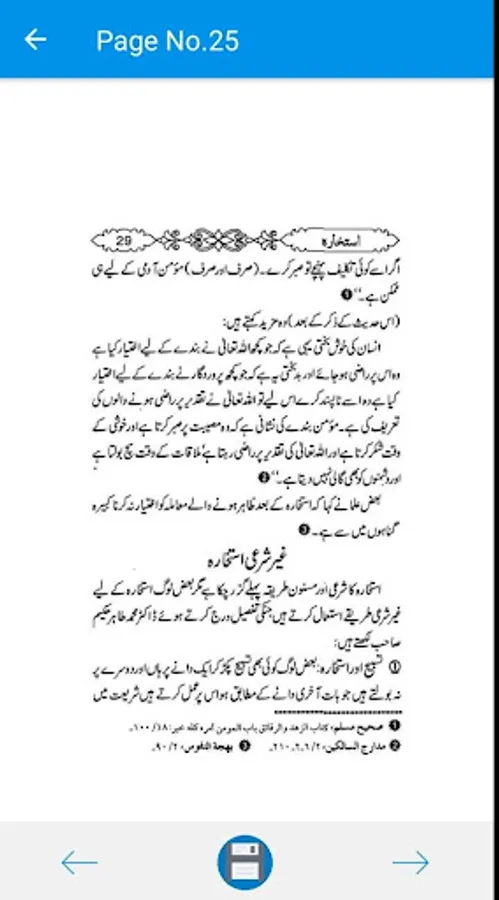 Page No.25
استخارہ
29
اگر اسے کوئی تکلیف پہنچے تو صبر کرے۔ (صرف اور صرف) مؤمن آدمی کے لیے ہی
ممکن ہے۔‘‘ ❶
(اس حدیث کے ذکر کے بعد) وہ مزید کہتے ہیں:
انسان کی خوش بختی یہی ہے کہ جو کچھ اللہ تعالیٰ نے بندے کے لیے اختیار کیا ہے
وہ اس پر راضی ہو جائے اور بد بختی یہ ہے کہ جو کچھ پروردگار نے بندے کے لیے اختیار
کیا ہے وہ اسے ناپسند کرے اس لیے تو اللہ تعالیٰ نے تقدیر پر راضی ہونے والوں کی
تعریف کی ہے۔ مؤمن بندے کی نشانی ہے کہ وہ مصیبت پر صبر کرتا ہے اور خوشی کے
وقت شکر کرتا ہے اور اللہ تعالیٰ کی تقدیر پر راضی رہتا ہے ملاقات کے وقت سچ بولتا ہے
اور دشمنوں کو بھی گالی نہیں دیتا ہے۔‘‘ ❷
بعض علما نے کہا کہ استخارہ کے بعد ظاہر ہونے والے معاملہ کو اختیار نہ کرنا کبیرہ
گناہوں میں سے ہے۔ ❸
غیر شرعی استخارہ
استخارہ کا شرعی اور مسنون طریقہ پہلے گزر چکا ہے مگر بعض لوگ استخارہ کے لیے
غیر شرعی طریقے استعمال کرتے ہیں جنکی تفصیل درج کرتے ہوئے ڈاکٹر محمد طاہر حکیم
صاحب لکھتے ہیں:
① تسبیح اور استخارہ: بعض لوگ کوئی بھی تسبیح پکڑ کر ایک دانے پر ہاں اور دوسرے پر
نہ بولتے ہیں جو بات آخری دانے کے مطابق ہو اس پر عمل کرتے ہیں شریعت میں
❶ صحیح مسلم، کتاب الزھد والرقائق باب المومن امرہ کلہ خیر: ۱۰۰/۱۸۔
❷ مدارج السالکین: ۲/۶، ۲۱۰۔ ❸ بهجة النفوس: ۹۰/۲۔